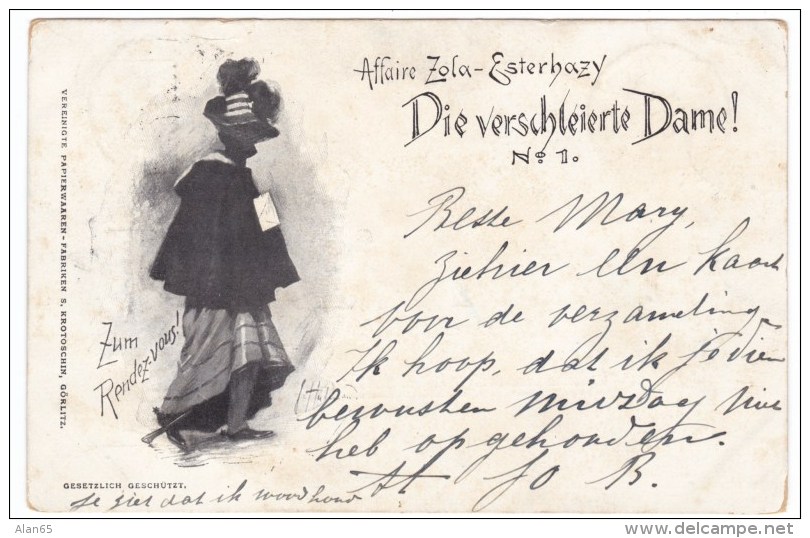 Affaire Zola-Esterhazy
Die verschleierte Dame!
No. 1.
VEREINIGTE PAPIERWAAREN-FABRIKEN S. KROTOSCHIN, GÖRLITZ.
Zum
Rendez-vous!
Beste Mary,
Ziehier een kaart
voor de verzameling
Ik hoop, dat ik je dien
bewusten
heb opgehouden.
Jo B.
GESETZLICH GESCHÜTZT.
Je ziet dat ik woord houd
Alan65
delcampe.net